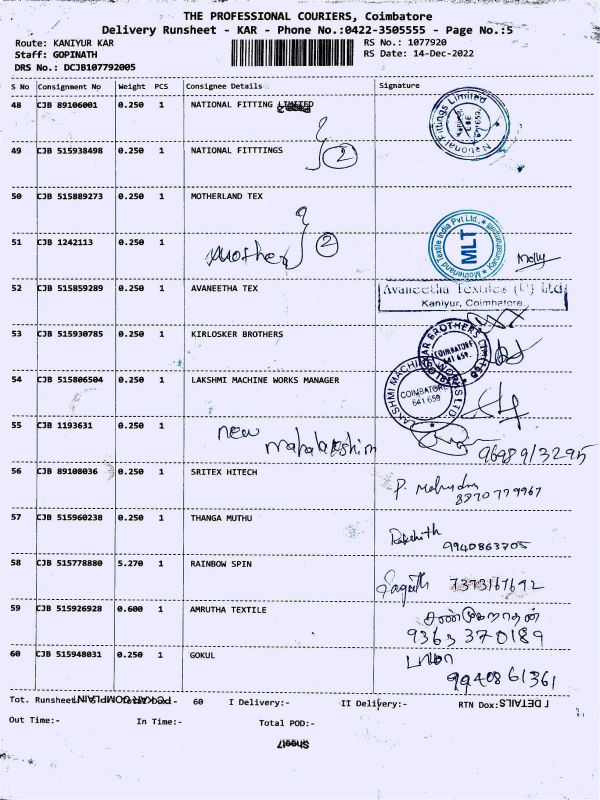 THE PROFESSIONAL COURIERS, Coimbatore
Delivery Runsheet - KAR - Phone No.:0422-3505555 - Page No.:5
Route: KANIYUR KAR
RS No.: 1077920
Staff: GOPINATH
RS Date: 14-Dec-2022
DRS No.: DCJB107792005
S No Consignment No Weight PCS Consignee Details Signature
48 CJB 89106001 0.250 1 NATIONAL FITTING LIMITED
National Fittings Limited
49 CJB 515938498 0.250 1 NATIONAL FITTTINGS
2
50 CJB 515889273 0.250 1 MOTHERLAND TEX
51 CJB 1242113 0.250 1 mother 2
Motherland Textile India Pvt Ltd.,
MLT
Molly
52 CJB 515859289 0.250 1 AVANEETHA TEX
Avaneetha Textiles (P) Ltd
Kaniyur, Coimbatore.
53 CJB 515930785 0.250 1 KIRLOSKER BROTHERS
COIMBATORE
641 659.
54 CJB 515806504 0.250 1 LAKSHMI MACHINE WORKS MANAGER
LAKSHMI MACHINE
COIMBATORE
641 659
55 CJB 1193631 0.250 1 new
9698913295
56 CJB 89108036 0.250 1 SRITEX HITECH
8870779967
57 CJB 515960238 0.250 1 THANGA MUTHU
Rakshith
9940863705
58 CJB 515778880 5.270 1 RAINBOW SPIN
7373167692
59 CJB 515926928 0.600 1 AMRUTHA TEXTILE
9363370189
60 CJB 515948031 0.250 1 GOKUL
9940861361
Tot. Runsheet 60 I Delivery:- II Delivery:- RTN Dox:
Out Time:- In Time:- Total POD:-